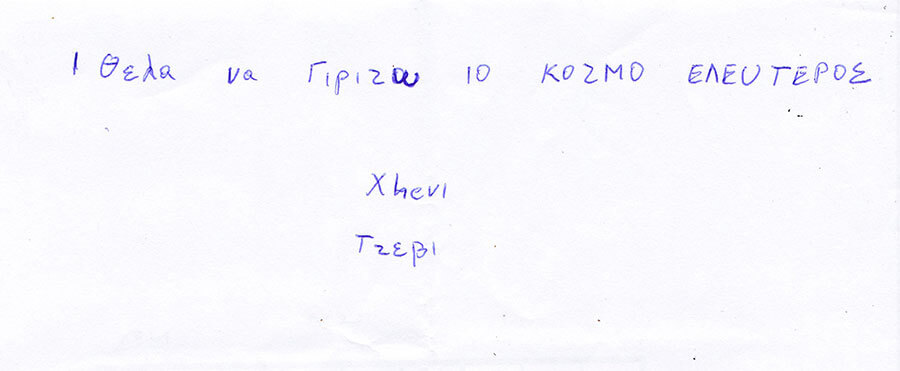 Ι Θελα να Γιριζω το ΚΟΖΜΟ ΕΛΕΥΤΕΡΟΣ
Xhevi
Τζεβι